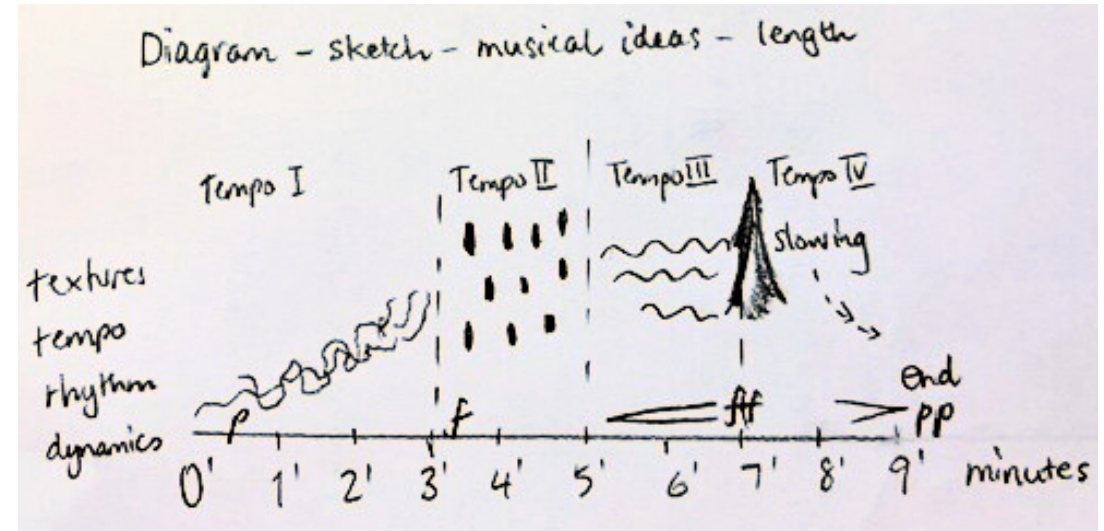 Diagram - sketch - musical ideas - length
Tempo I Tempo II Tempo III Tempo IV
slowing
textures
tempo
rhythm
end
dynamics p f fff pp
0' 1' 2' 3' 4' 5' 6' 7' 8' 9' minutes